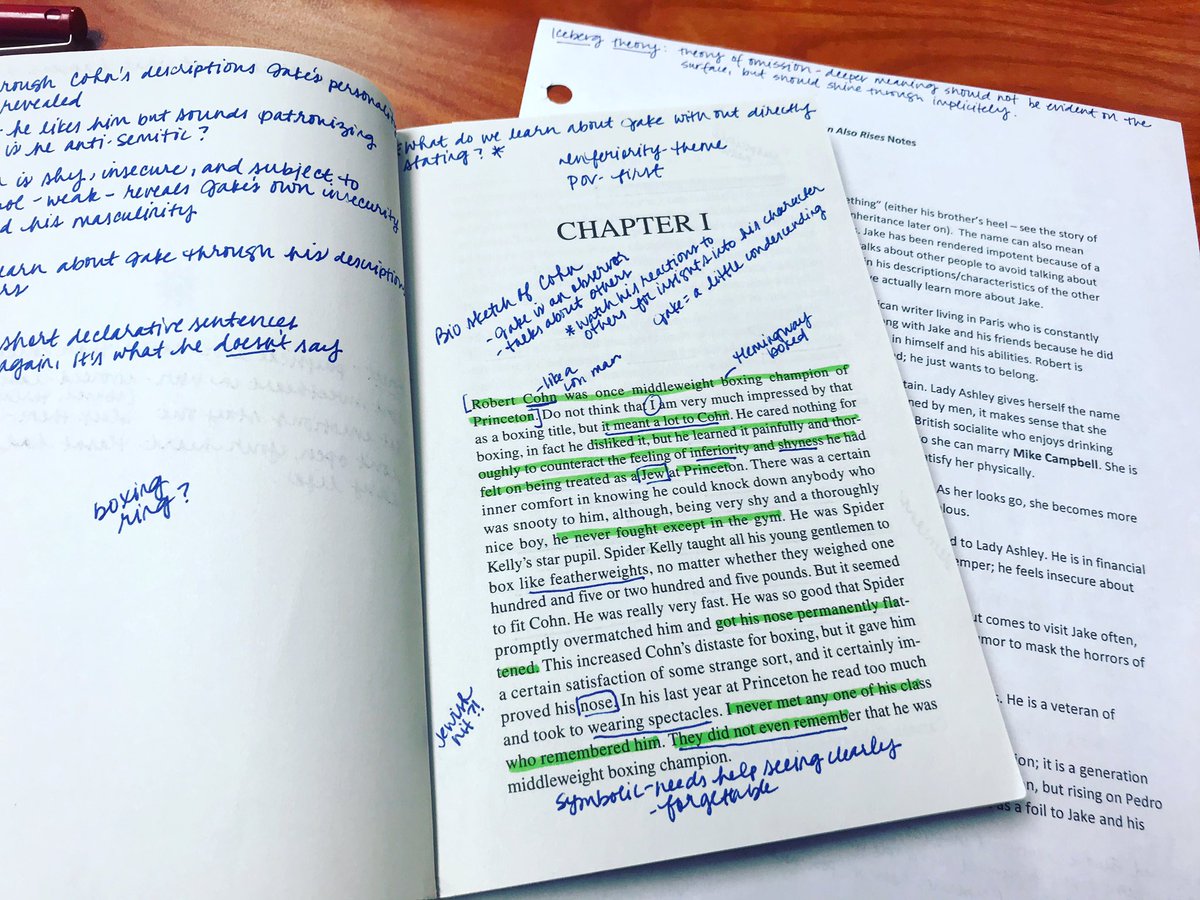 through Cohn's descriptions Jake's personality
revealed
- he likes him but sounds patronizing
is he anti-semitic?
is shy, insecure, and subject to
- weak - reveals Jake's own insecurity
his masculinity
learn about Jake through his descriptions
short declarative sentences
again, it's what he doesn't say
boxing
ring?
*What do we learn about Jake with out directly
stating? *
inferiority - theme
POV - first
CHAPTER I
Bio sketch of Cohn
- Jake is an observer
- talks about others
*watch his reactions to
others for insights into his character
Jake = a little condescending
- like a
con man
Hemingway
boxed
Robert Cohn was once middleweight boxing champion of
Princeton. Do not think that I am very much impressed by that
as a boxing title, but it meant a lot to Cohn. He cared nothing for
boxing, in fact he disliked it, but he learned it painfully and thor-
oughly to counteract the feeling of inferiority and shyness he had
felt on being treated as a Jew at Princeton. There was a certain
inner comfort in knowing he could knock down anybody who
was snooty to him, although, being very shy and a thoroughly
nice boy, he never fought except in the gym. He was Spider
Kelly's star pupil. Spider Kelly taught all his young gentlemen to
box like featherweights, no matter whether they weighed one
hundred and five or two hundred and five pounds. But it seemed
to fit Cohn. He was really very fast. He was so good that Spider
promptly overmatched him and got his nose permanently flat-
tened. This increased Cohn's distaste for boxing, but it gave him
a certain satisfaction of some strange sort, and it certainly im-
proved his nose. In his last year at Princeton he read too much
and took to wearing spectacles. I never met any one of his class
who remembered him. They did not even remember that he was
middleweight boxing champion.
Jewish
hit?!
symbolic - needs help seeing clearly
- forgettable
Iceberg theory: theory of omission - deeper meaning should not be evident on the
surface, but should shine through implicitely.
n Also Rises Notes
ething" (either his brother's heel – see the story of
nheritance later on). The name can also mean
. Jake has been rendered impotent because of a
alks about other people to avoid talking about
n his descriptions/characteristics of the other
ve actually learn more about Jake.
ican writer living in Paris who is constantly
ng with Jake and his friends because he did
in himself and his abilities. Robert is
d; he just wants to belong.
tain. Lady Ashley gives herself the name
ned by men, it makes sense that she
British socialite who enjoys drinking
o she can marry Mike Campbell. She is
tisfy her physically.
As her looks go, she becomes more
lous.
d to Lady Ashley. He is in financial
emper; he feels insecure about
ut comes to visit Jake often,
mor to mask the horrors of
s. He is a veteran of
ion; it is a generation
n, but rising on Pedro
as a foil to Jake and his